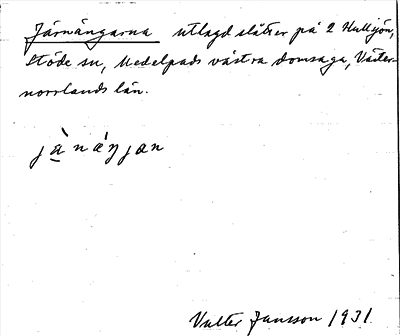 Järnängarna utlagd slåtter på 2 Hullsjön,
Stöde sn, Medelpads västra domsaga, Väster-
norrlands län.
jànáŋjan
Valter Jansson 1931